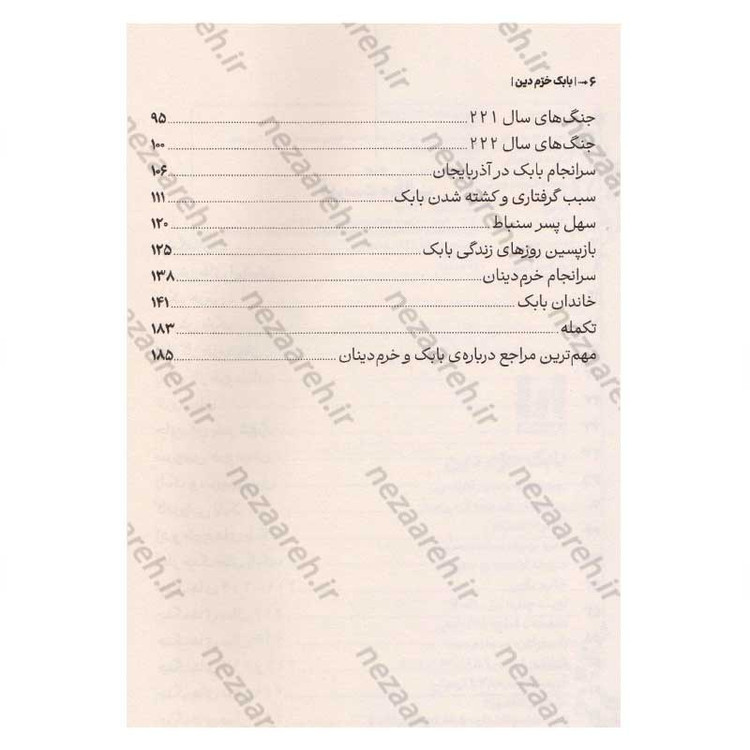 ۶ → | بابک خرّم دین |
جنگ‌های سال ۲۲۱ ........ ۹۵
جنگ‌های سال ۲۲۲ ........ ۱۰۰
سرانجام بابک در آذربایجان ........ ۱۰۶
سبب گرفتاری و کشته شدن بابک ........ ۱۱۱
سهل پسر سنباط ........ ۱۲۰
بازپسین روزهای زندگی بابک ........ ۱۲۵
سرانجام خرم‌دینان ........ ۱۳۸
خاندان بابک ........ ۱۴۱
تکمله ........ ۱۸۳
مهم‌ترین مراجع درباره‌ی بابک و خرم‌دینان ........ ۱۸۵
nezaareh.ir